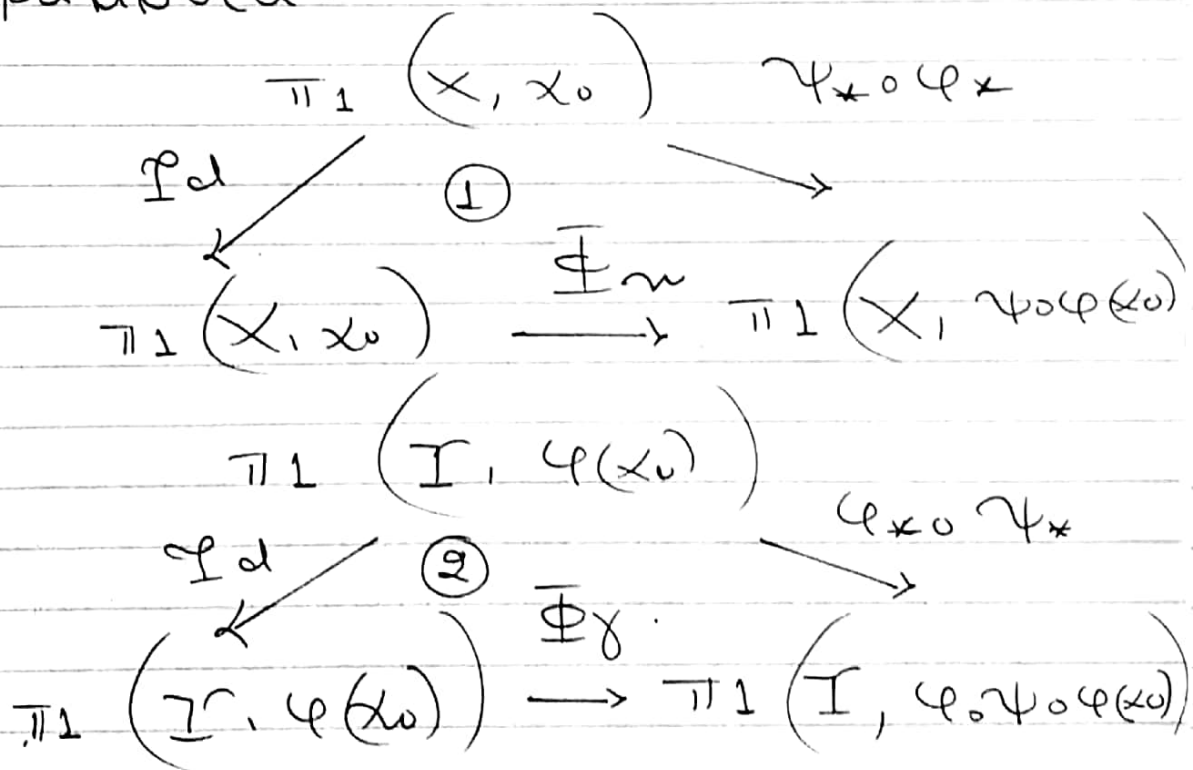 π1 (X, x₀) ψ* ∘ φ*
Id ①
Φ
π1 (X, x₀) → π1 (X, ψ∘φ(x₀)
π1 (I, φ(x₀))
φ* ∘ ψ*
Id ②
Φγ
π1 (I, φ(x₀)) → π1 (I, φ∘ψ∘φ(x₀))